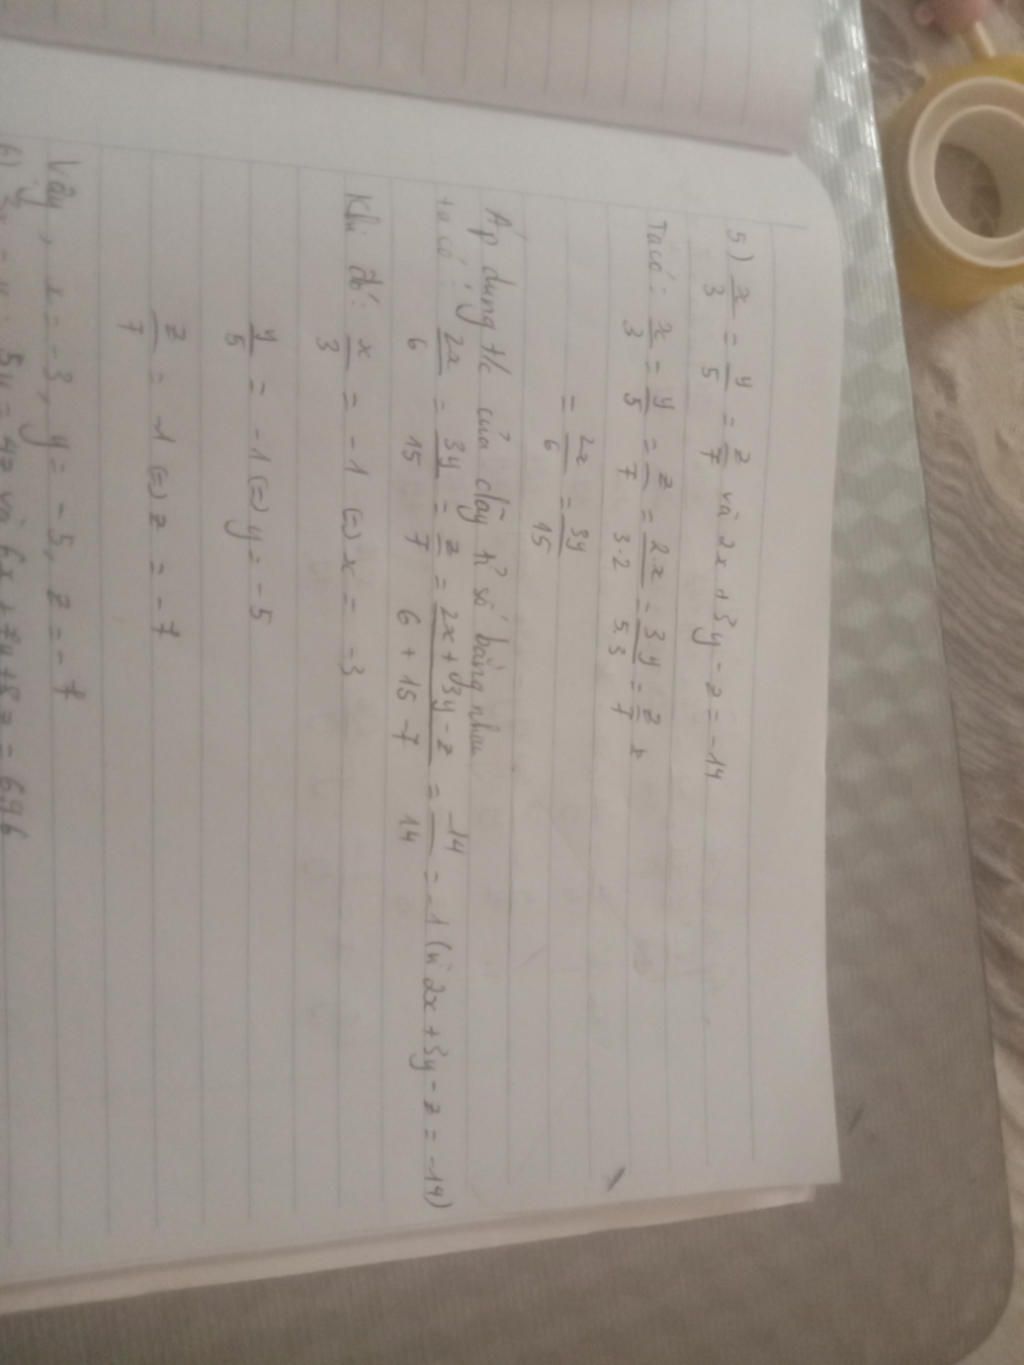 5) x/3 = y/5 = z/7 và 2x + 3y - z = -14
Ta có: x/3 = y/5 = z/7 = 2.x/3.2 = 3y/5.3 = z/7
= 2x/6 = 3y/15
Áp dụng t/c của dãy tỉ số bằng nhau
ta có: 2x/6 = 3y/15 = z/7 = 2x+3y-z/6+15-7 = -14/14 = -1 (vì 2x+3y-z = -14)
Khi đó: x/3 = -1 (=) x = -3
y/5 = -1 (=) y = -5
z/7 = -1 (=) z = -7
Vậy, x = -3, y = -5, z = -7
6) 3x = y; 5y = 4z và 6x + 7y + 8z = 696